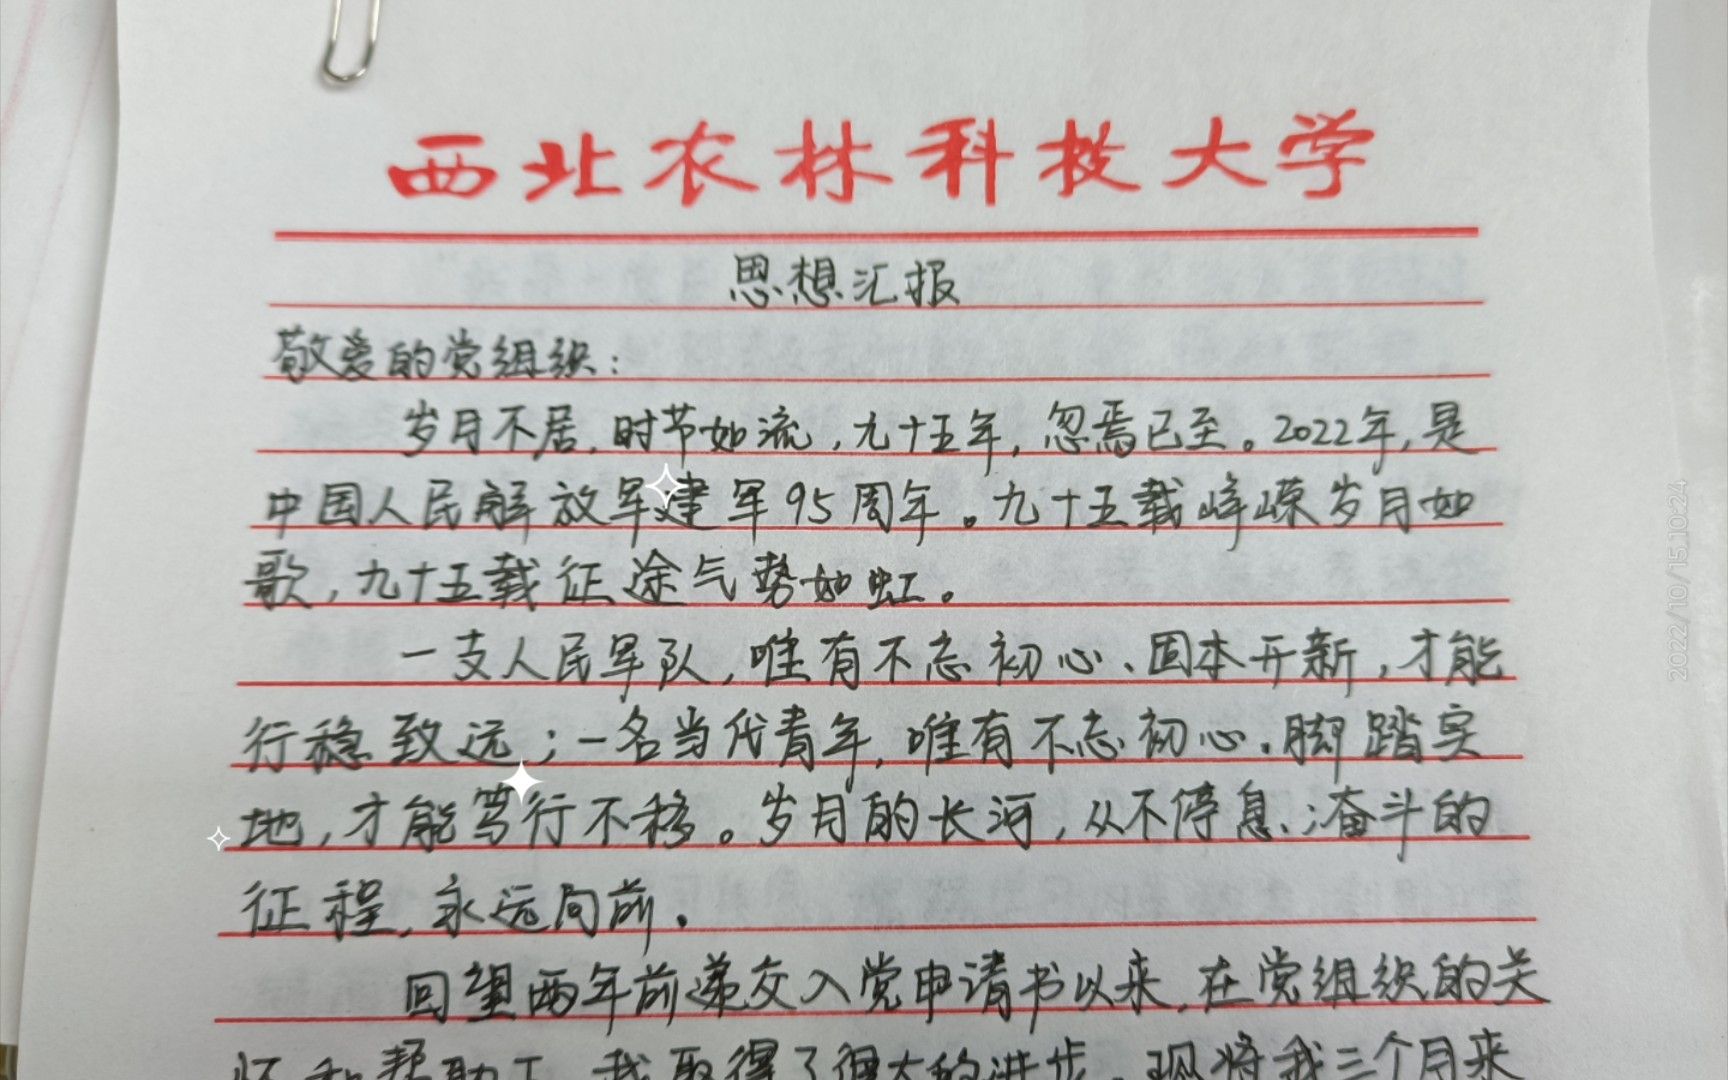 西北农林科技大学
思想汇报
敬爱的党组织：
岁月不居，时节如流，九十五年，忽焉已至。2022年，是
中国人民解放军建军95周年。九十五载峥嵘岁月如
歌，九十五载征途气势如虹。
一支人民军队，唯有不忘初心、固本开新，才能
行稳致远；一名当代青年，唯有不忘初心、脚踏实
地，才能笃行不移。岁月的长河，从不停息；奋斗的
征程，永远向前。
回望两年前递交入党申请书以来，在党组织的关
怀和帮助下，我取得了很大的进步，现将我三个月来
2022/10/15 10:24